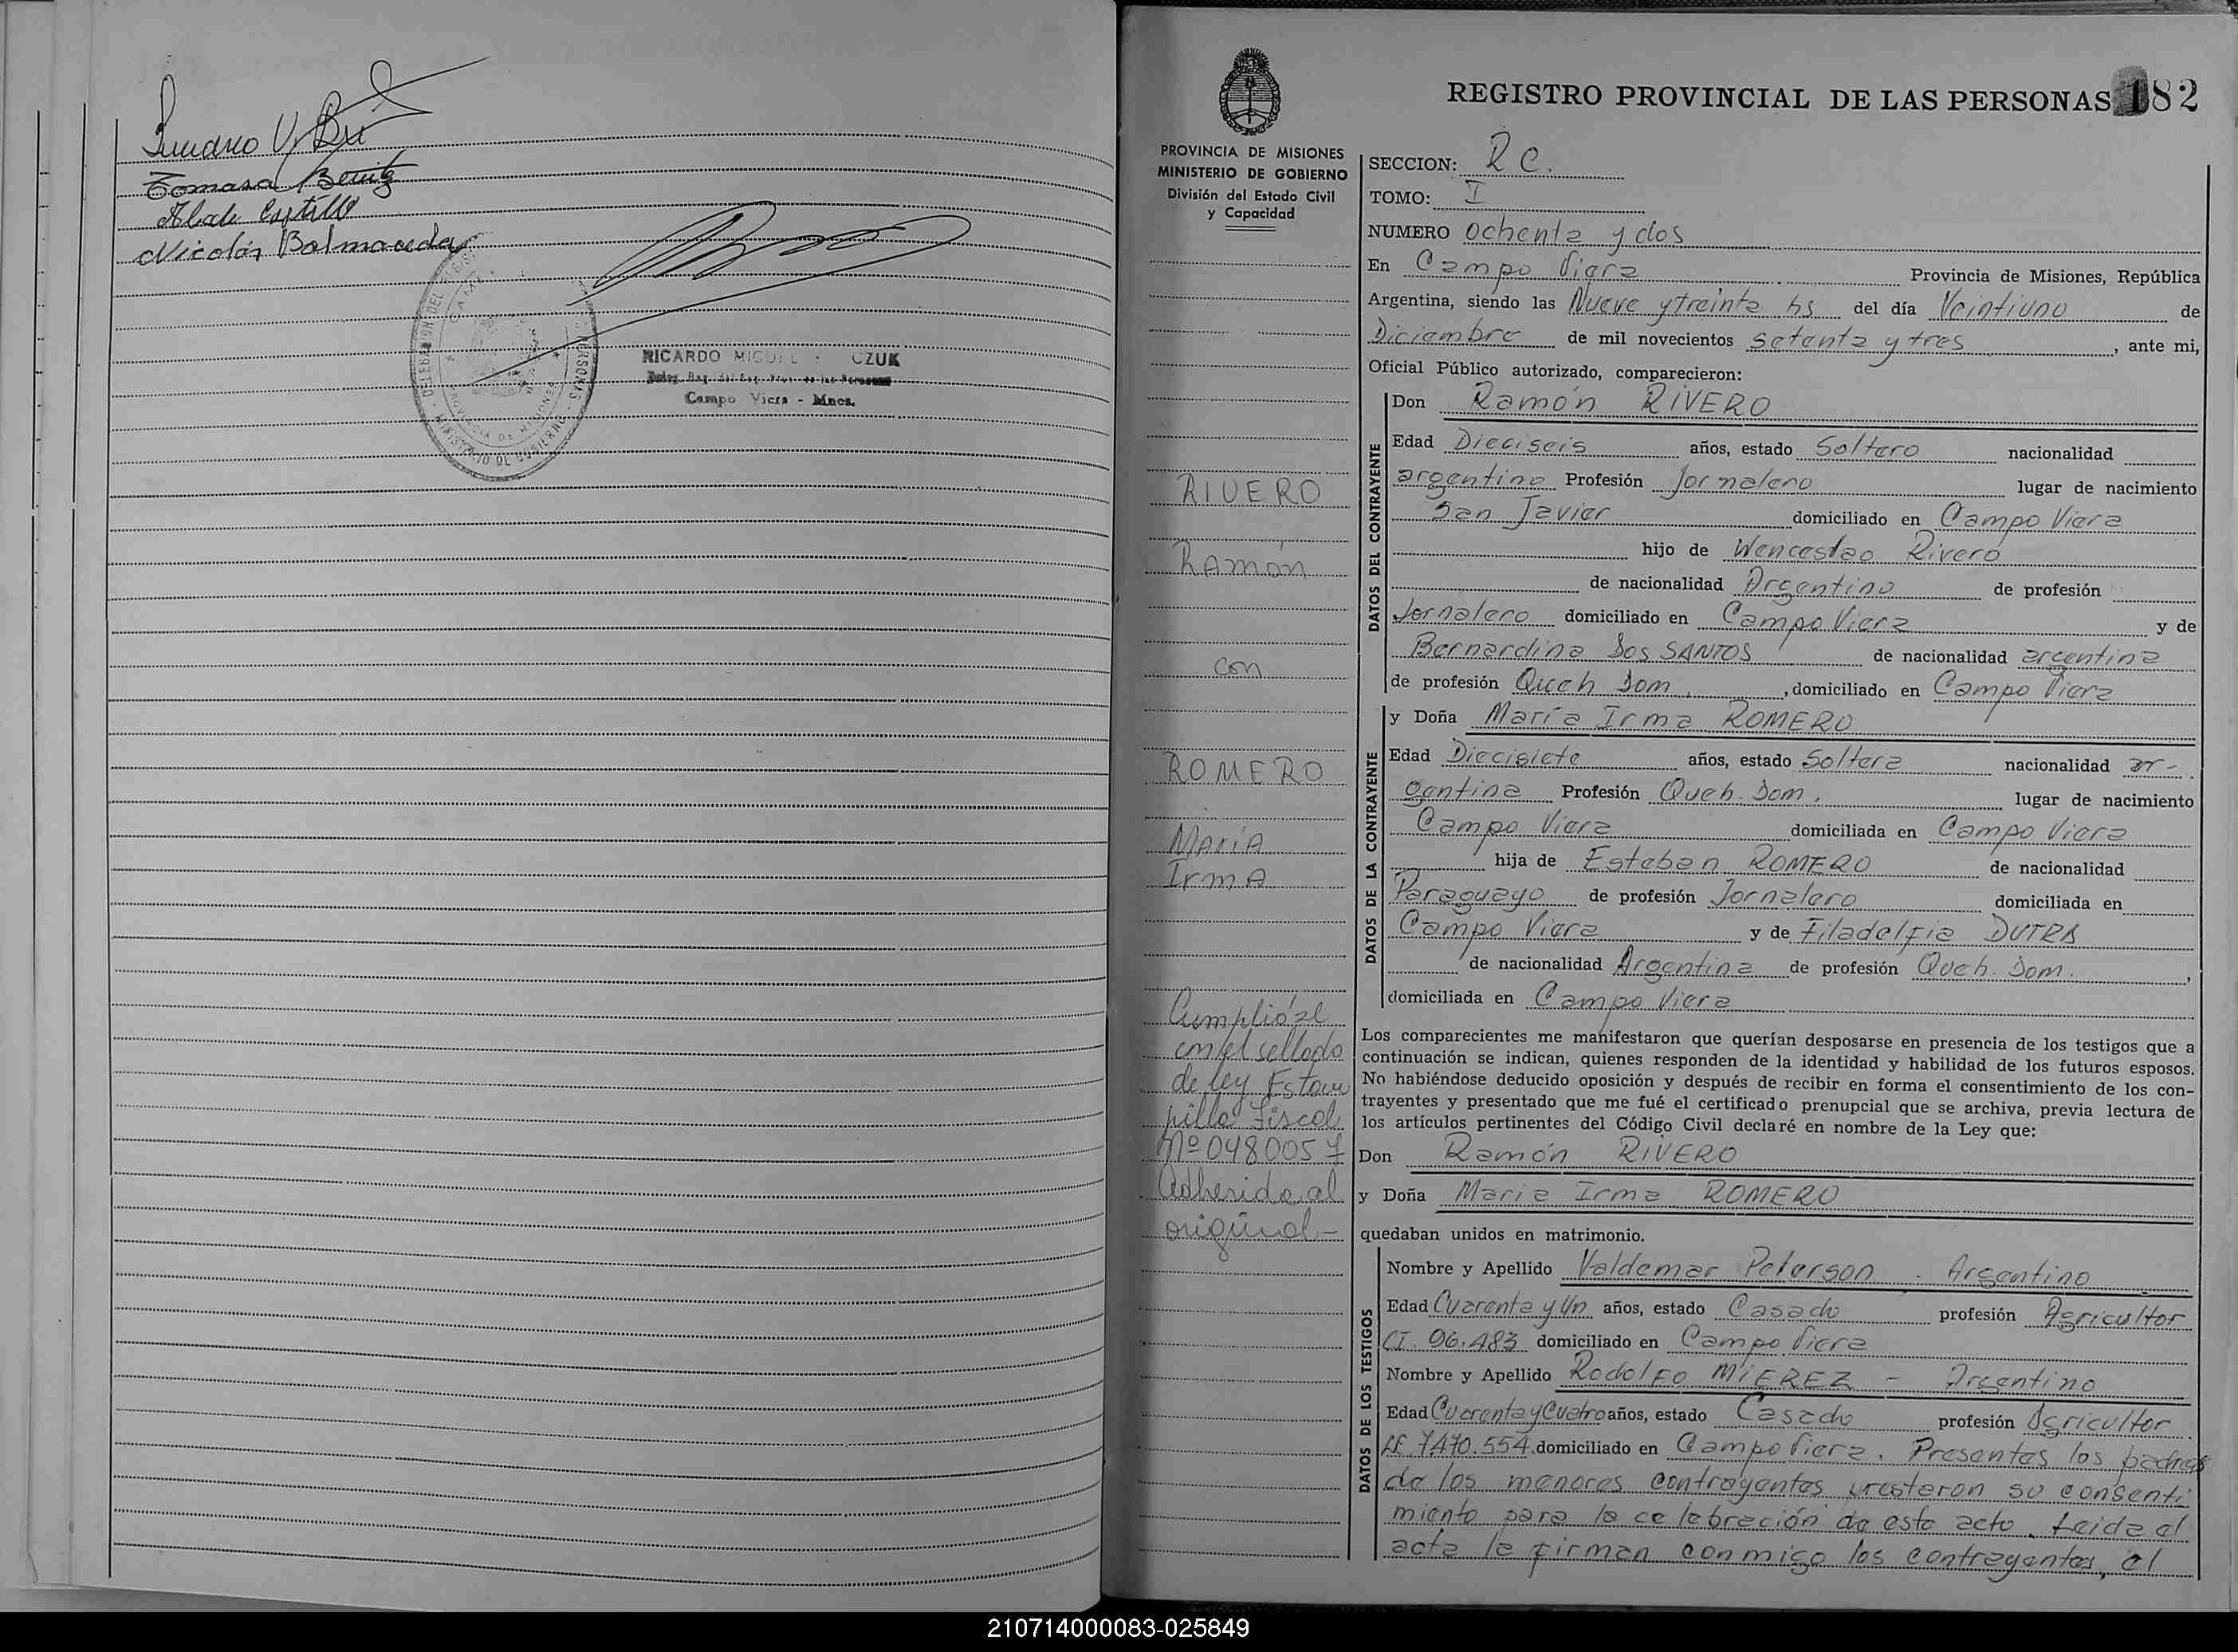 Tomasa Benitz
Castillo
Nicolás Balmaceda
RICARDO MIGUEL CZUK
Campo Viera - Mnes.
REGISTRO PROVINCIAL DE LAS PERSONAS 182
PROVINCIA DE MISIONES
MINISTERIO DE GOBIERNO
División del Estado Civil
y Capacidad
RIVERO
Ramón
con
ROMERO
María
Irma
Cumplióse
con el sellado
de ley Estam
pilla Fiscal
Nº 0480057
Adherida al
original -
SECCION: RC.
TOMO: I
NUMERO Ochenta y dos
En Campo Viera Provincia de Misiones, República
Argentina, siendo las Nueve y treinta hs del día Veintiuno de
Diciembre de mil novecientos setenta y tres, ante mi,
Oficial Público autorizado, comparecieron:
DATOS DEL CONTRAYENTE
Don Ramón RIVERO
Edad Dieciseis años, estado Soltero nacionalidad
argentina Profesión Jornalero lugar de nacimiento
San Javier domiciliado en Campo Viera
hijo de Wenceslao Rivero
de nacionalidad Argentino de profesión
Jornalero domiciliado en Campo Viera y de
Bernardina Dos SANTOS de nacionalidad argentina
de profesión Queh Dom., domiciliado en Campo Viera
DATOS DE LA CONTRAYENTE
y Doña María Irma ROMERO
Edad Diecisiete años, estado Soltera nacionalidad ar-
gentina Profesión Queh. Dom. lugar de nacimiento
Campo Viera domiciliada en Campo Viera
hija de Esteban ROMERO de nacionalidad
Paraguayo de profesión Jornalero domiciliada en
Campo Viera y de Filadelfia DUTRA
de nacionalidad Argentina de profesión Queh. Dom.,
domiciliada en Campo Viera
Los comparecientes me manifestaron que querían desposarse en presencia de los testigos que a
continuación se indican, quienes responden de la identidad y habilidad de los futuros esposos.
No habiéndose deducido oposición y después de recibir en forma el consentimiento de los con-
trayentes y presentado que me fué el certificado prenupcial que se archiva, previa lectura de
los artículos pertinentes del Código Civil declaré en nombre de la Ley que:
Don Ramón RIVERO
y Doña Maria Irma ROMERO
quedaban unidos en matrimonio.
DATOS DE LOS TESTIGOS
Nombre y Apellido Valdemar Peterson - Argentino
Edad Cuarenta y Un años, estado Casado profesión Agricultor
CI. 96.483 domiciliado en Campo Viera
Nombre y Apellido Rodolfo MIEREZ - Argentino
Edad Cuarenta y Cuatro años, estado Casado profesión Agricultor.
LE 7.470.554 domiciliado en Campo Viera. Presentes los padres
de los menores contrayentes prestaron su consenti
miento para la celebración de este acto. Leida el
acta la firman conmigo los contrayentes, el
210714000083-025849